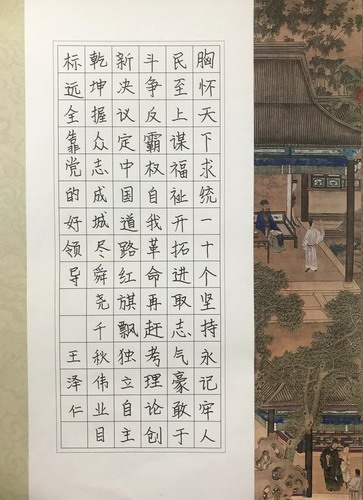 胸怀天下求统一十个坚持永记牢人
民至上谋福祉开拓进取志气豪敢于
斗争反霸权自我革命再赶考理论创
新决议定中国道路红旗飘独立自主
乾坤握众志成城尽舜尧千秋伟业目
标远全靠党的好领导 王泽仁